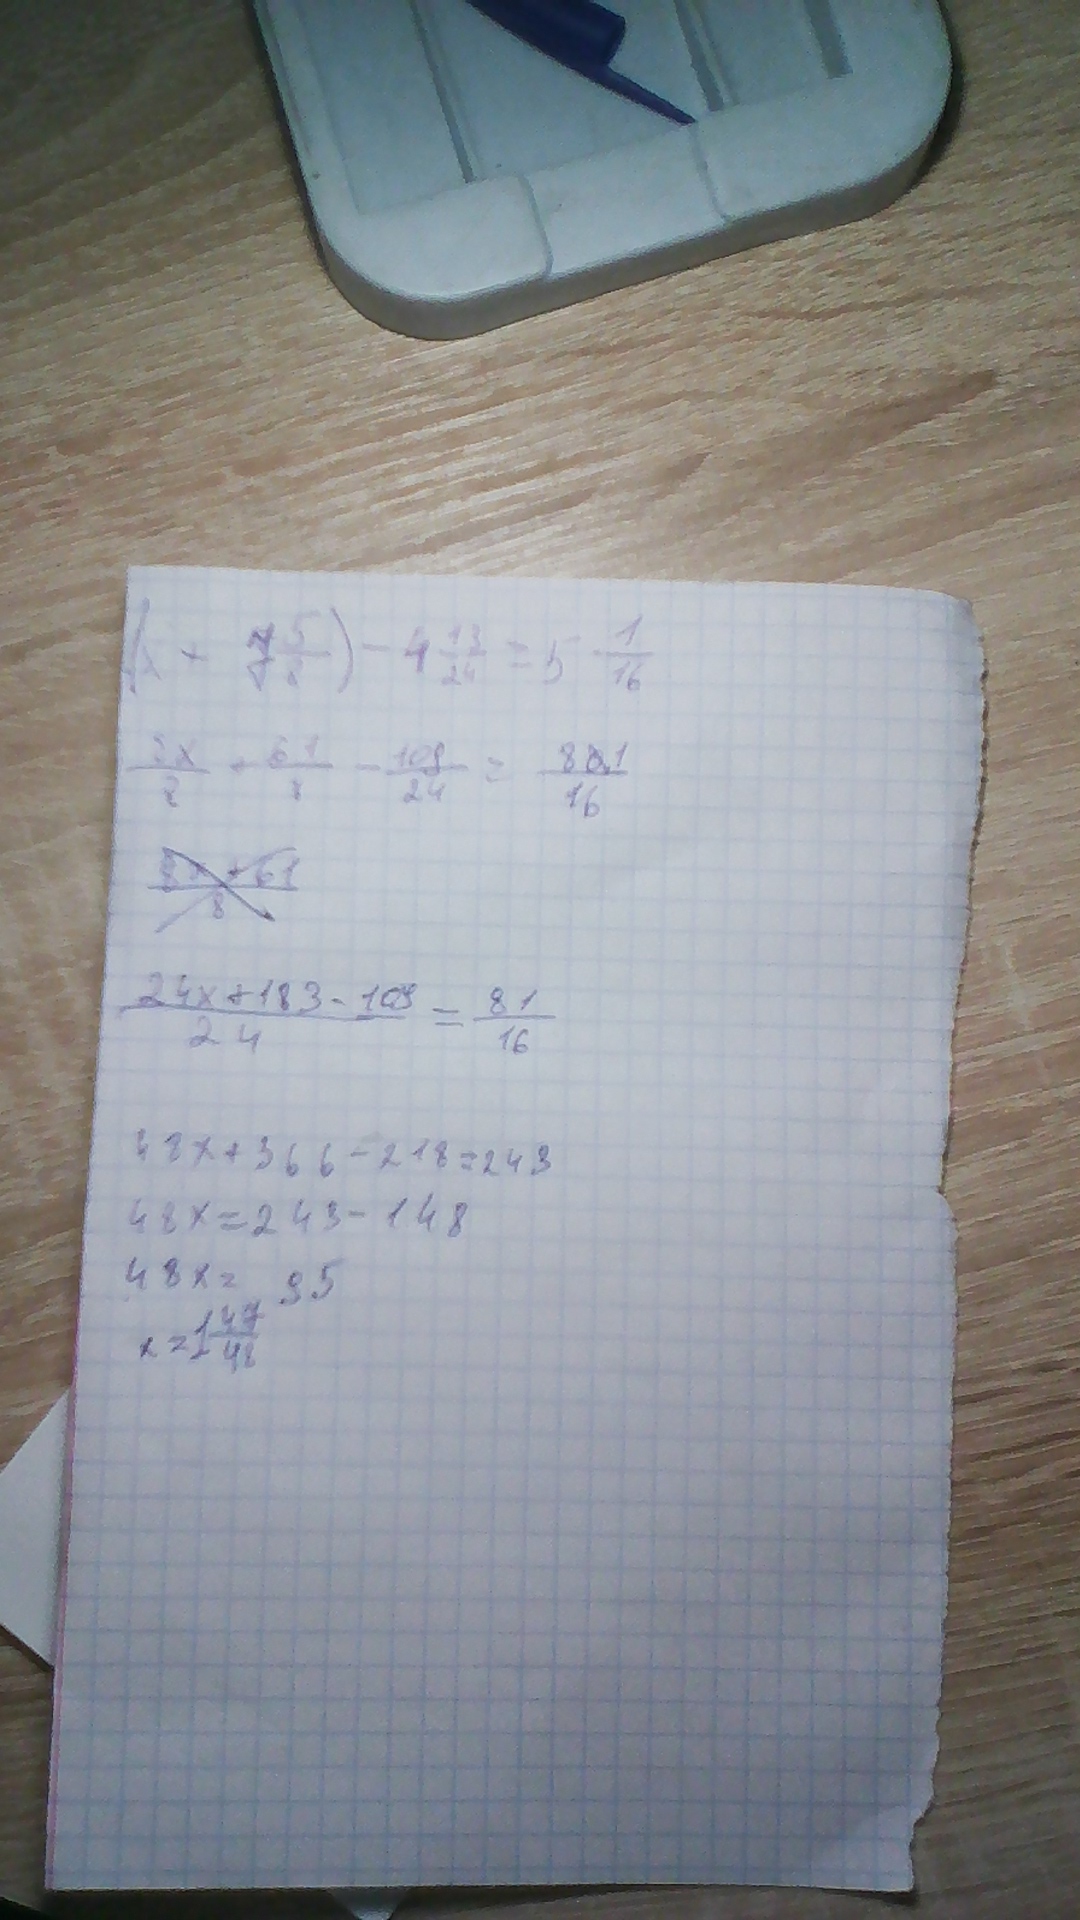 (x + 7 5/8) - 4 13/24 = 5 1/16
8x/8 + 61/8 - 109/24 = 81/16
8x+61/8
24x+183-109/24 = 81/16
48x+366-218=243
48x=243-148
48x= 95
x=1 47/48